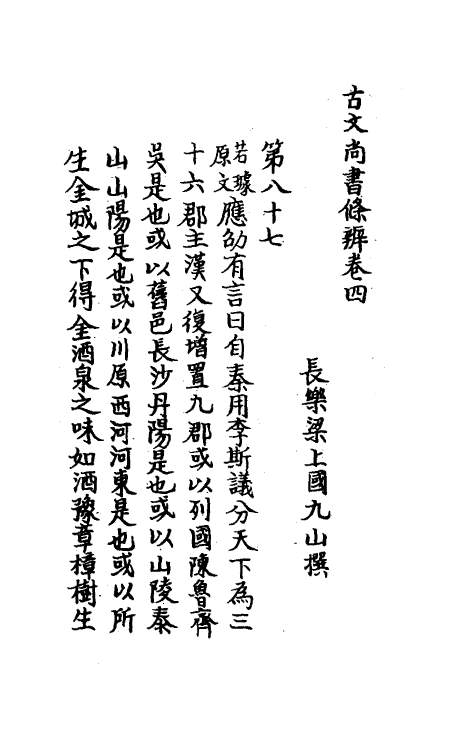 古文尚書條辨卷四
長樂梁上國九山撰
第八十七
若璩原文應劭有言曰自秦用李斯議分天下為三
十六郡主漢又復增置九郡或以列國陳魯齊
吳是也或以舊邑長沙丹陽是也或以山陵泰
山山陽是也或以川原西河河東是也或以所
生金城之下得金酒泉之味如酒豫章樟樹生